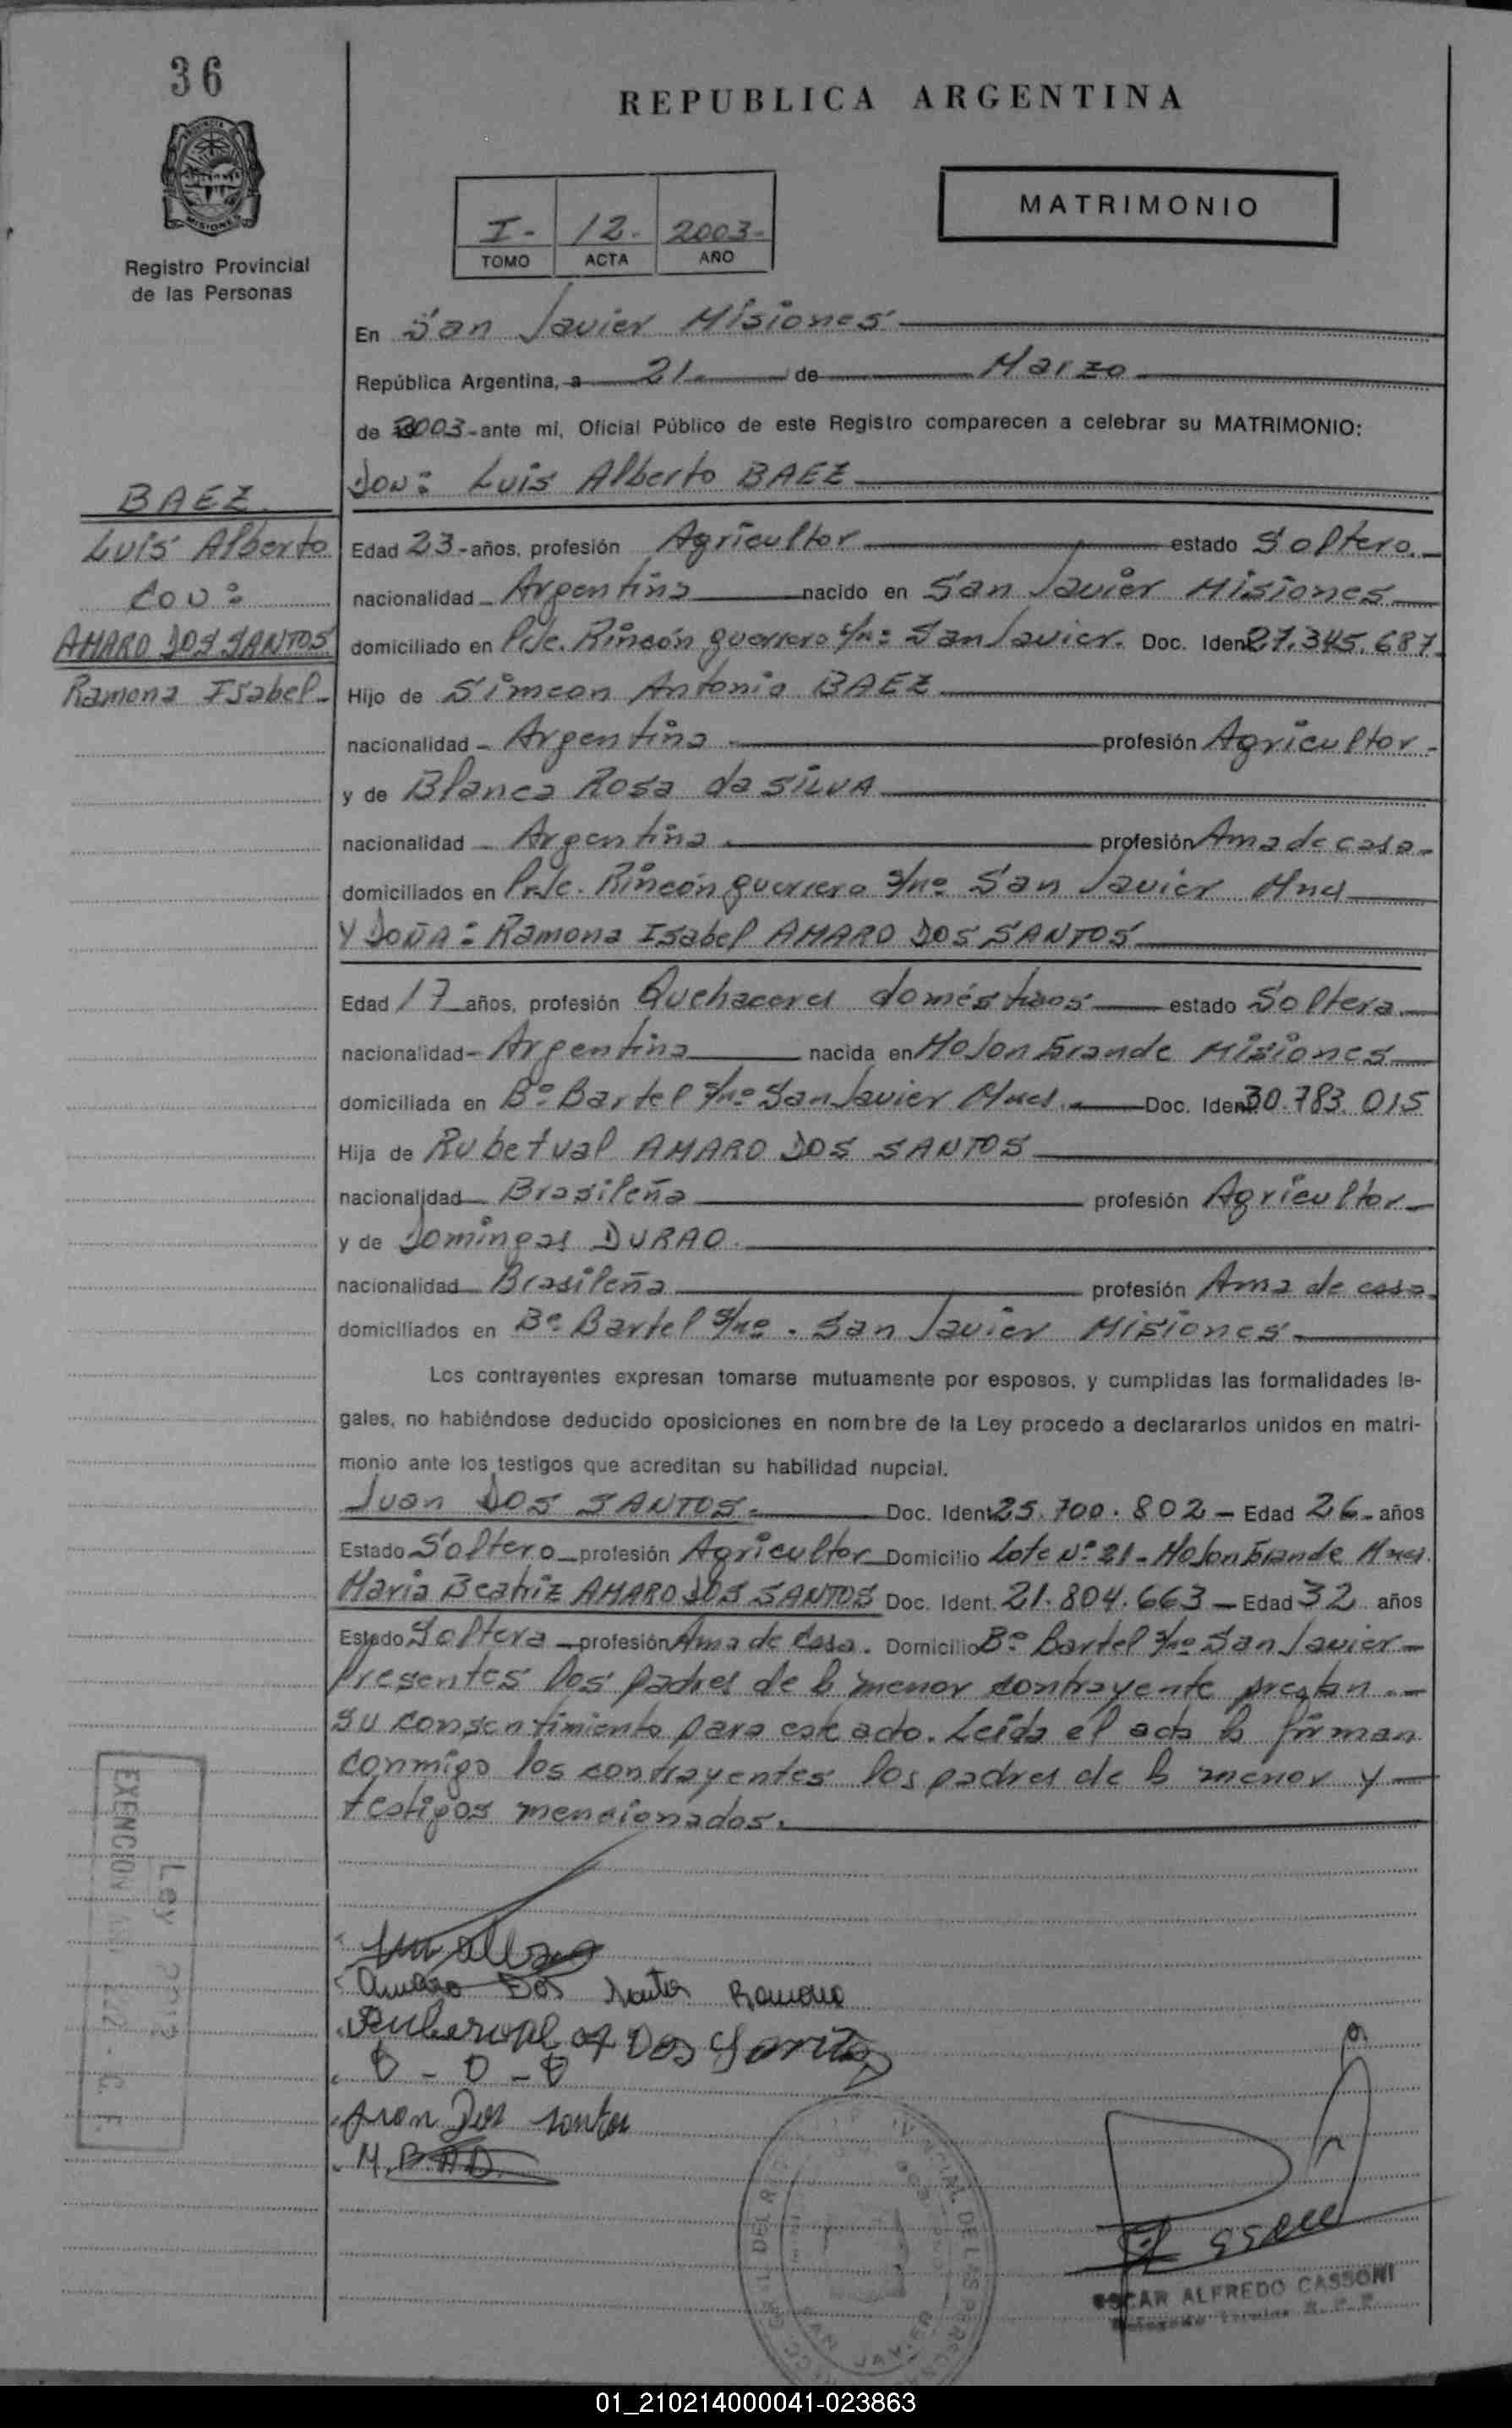 36
REPUBLICA ARGENTINA
MISIONES
Registro Provincial
de las Personas
I- 12. 2003-
TOMO ACTA AÑO
MATRIMONIO
En San Javier Misiones
República Argentina, a 21. de Marzo
de 2003-ante mi, Oficial Público de este Registro comparecen a celebrar su MATRIMONIO:
Don: Luis Alberto BAEZ
BAEZ
Luis Alberto
con:
AMARO DOS SANTOS
Ramona Isabel-
Edad 23-años, profesión Agricultor estado Soltero.
nacionalidad Argentina nacido en San Javier Misiones
domiciliado en Pje. Rincón guerrero s/nº San Javier. Doc. Ident 27.345.687
Hijo de Simeon Antonio BAEZ
nacionalidad - Argentina profesión Agricultor-
y de Blanca Rosa da SILVA
nacionalidad Argentina profesión Ama de casa-
domiciliados en Pje. Rincón guerrero s/nº San Javier Mnes
Y DOÑA: Ramona Isabel AMARO DOS SANTOS
Edad 17 años, profesión Quehaceres domésticos estado Soltera
nacionalidad- Argentina nacida en Mojon Grande Misiones
domiciliada en Bº Bartel s/nº San Javier Mnes. Doc. Ident 30.783.015
Hija de Rubetval AMARO DOS SANTOS
nacionalidad Brasileña profesión Agricultor
y de Domingas DURAO.
nacionalidad Brasileña profesión Ama de casa.
domiciliados en Bº Bartel s/nº. San Javier Misiones
Los contrayentes expresan tomarse mutuamente por esposos, y cumplidas las formalidades le-
gales, no habiéndose deducido oposiciones en nombre de la Ley procedo a declararlos unidos en matri-
monio ante los testigos que acreditan su habilidad nupcial.
Juan DOS SANTOS. Doc. Ident 25.700.802 - Edad 26- años
Estado Soltero profesión Agricultor Domicilio Lote Nº 21- Mojon Grande Mnes.
Maria Beatriz AMARO DOS SANTOS Doc. Ident. 21.804.663 - Edad 32 años
Estado Soltera profesión Ama de Casa. Domicilio Bº Bartel s/nº San Javier-
Presentes los padres de la menor contrayente prestan
su consentimiento para este acto. Leída el acta la firman
conmigo los contrayentes los padres de la menor y
testigos mencionados.
EXENCION
Ley
Amaro Dos Santos Ramona
Dos Santos
D - D - D
Juan Dos santos
M.B.A.D.
SAN JAVIER
OSCAR ALFREDO CASSONI
01_210214000041-023863